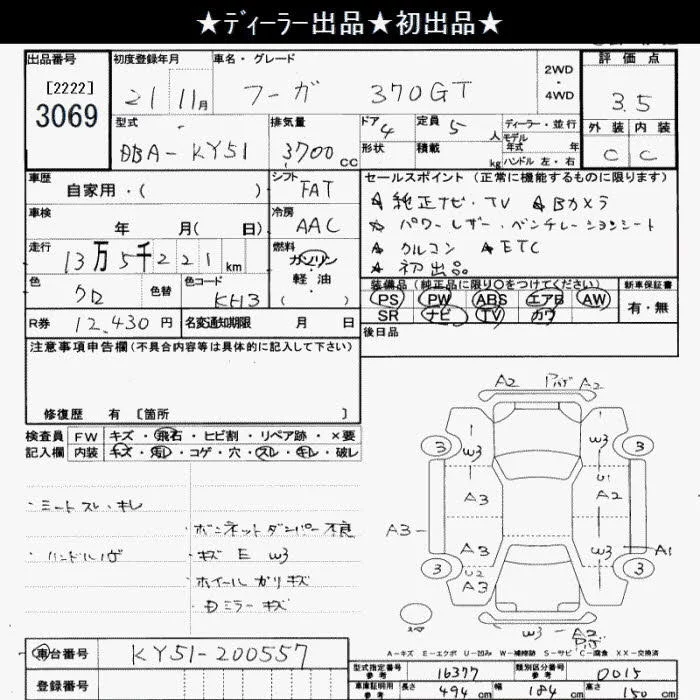 ★ディーラー出品★初出品★
出品番号 初度登録年月 車名・グレード 2WD・4WD 評価点
[2222] 3069 21 11月 フーガ 370GT 3.5
型式 排気量 ドア 定員 ディーラー・並行 外装 内装
DBA-KY51 3700cc 4 5人 モデル年式 年 C C
形状 積載 kg ハンドル 左・右
車歴 シフト セールスポイント(正常に機能するものに限ります)
自家用・( ) FAT ☆純正ナビ・TV ☆Bカメラ
車検 冷房 ☆パワーレザー・ベンチレーションシート
年 月( 日) AAC ☆クルコン ☆ETC
走行 燃料 ☆初出品
13万5千221km ガソリン・軽油・( )
色 色替 色コード 装備品(純正品に限り○をつけてください) 新車保証書
クロ KH3 PS PW ABS エアB AW 有・無
SR ナビ TV カワ
R券 12,430円 名変通知期限 月 日 後日品
注意事項申告欄(不具合内容等は具体的に記入して下さい)
修復歴 有 [箇所 ]
検査員 FW キズ・飛石・ヒビ割・リペア跡・×要
記入欄 内装 キズ・汚レ・コゲ・穴・スレ・キレ・破レ
・シートスレ・キレ
・ボンネットダンパー不良
・ハンドル
・キズ E W3
・ホイールガリキズ
・Dミラーキズ
A2 A2
3 W3 W3 3
U1
A3 A2
A3
A3 W3 A1
3 U2 3
W3 A2
A-キズ E-エクボ U-凹み W-補修跡 S-サビ C-腐食 XX-交換済
車台番号 KY51-200557
型式指定番号 参考 16377 類別区分番号 参考 0015
登録番号
車庫証明用 参考 長さ 494cm 幅 184cm 高さ 150cm